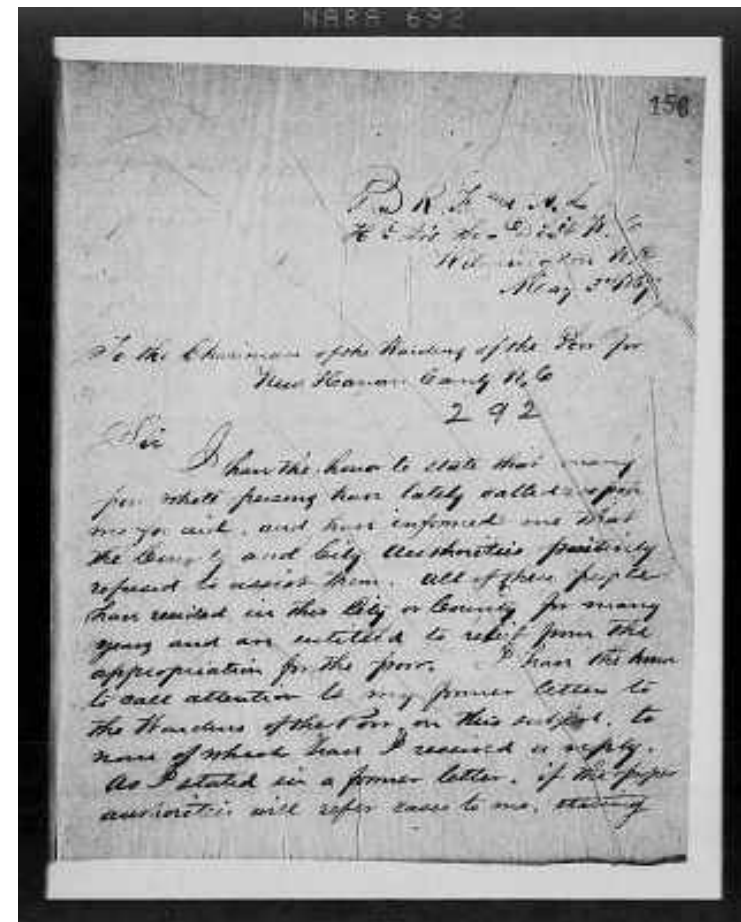 NARA 692
156
B R F and A. L
Wilmington N.C
May
To the Chairman of the Wardens of the Poor for
New Hanover County N.C
292
Sir
I have the honor to state that many
poor white persons have lately called upon
me for aid, and have informed me that
the County and City authorities positively
refused to assist them. All of these people
have resided in this City or County for many
years and are entitled to relief from the
appropriation for the poor. I have the honor
to call attention to my former letters to
the Wardens of the Poor, on this subject, to
none of which have I received a reply.
As I stated in a former letter, if the proper
authorities will refer cases to me, stating